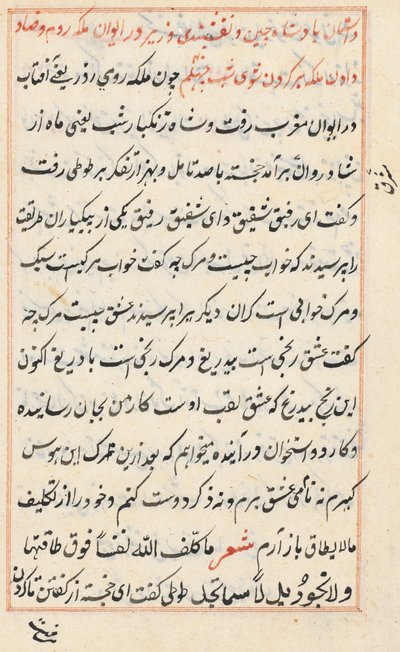 داستان پادشاه چین و نقشبندی وزیر در ایوان ملکه روم و رضا
دادن ملکه بر کردن شوی شب چهلم چون ملکه رومی روز یعنی آفتاب
در ایوان مغرب رفت و شاه زنگبار شب یعنی ماه از
شادروان برآمد خجسته با صد تامل و بهزار تفکر بر طوطی رفت
و گفت ای رفیق شفیق و ای شفیق رفیق یکی از پیکیاران طریقت
را پرسیدند که خواب چیست و مرک چه گفت خواب مرکیست سبک
و مرک خوابی است کران دیگر پیرا پرسیدند عشق چیست مرک چه
گفت عشق رنجی است بیدریغ و مرک رنجی است با دریغ اکنون
این رنج بیدریغ که عشق لقب اوست کار من بجان رسانیده
و کارد و استخوان در آینده میخواهم که بعد ازین ترک این هوس
گیرم نه نامی عشق برم و نه ذکر دوست کنم و خود را از تکلیف
مالایطاق باز آرم شعر ما کلف الله نفسا فوق طاقتها
ولا تجود ید الا بما تجد طوطی گفت ای خجسته از گفتن تا کردن